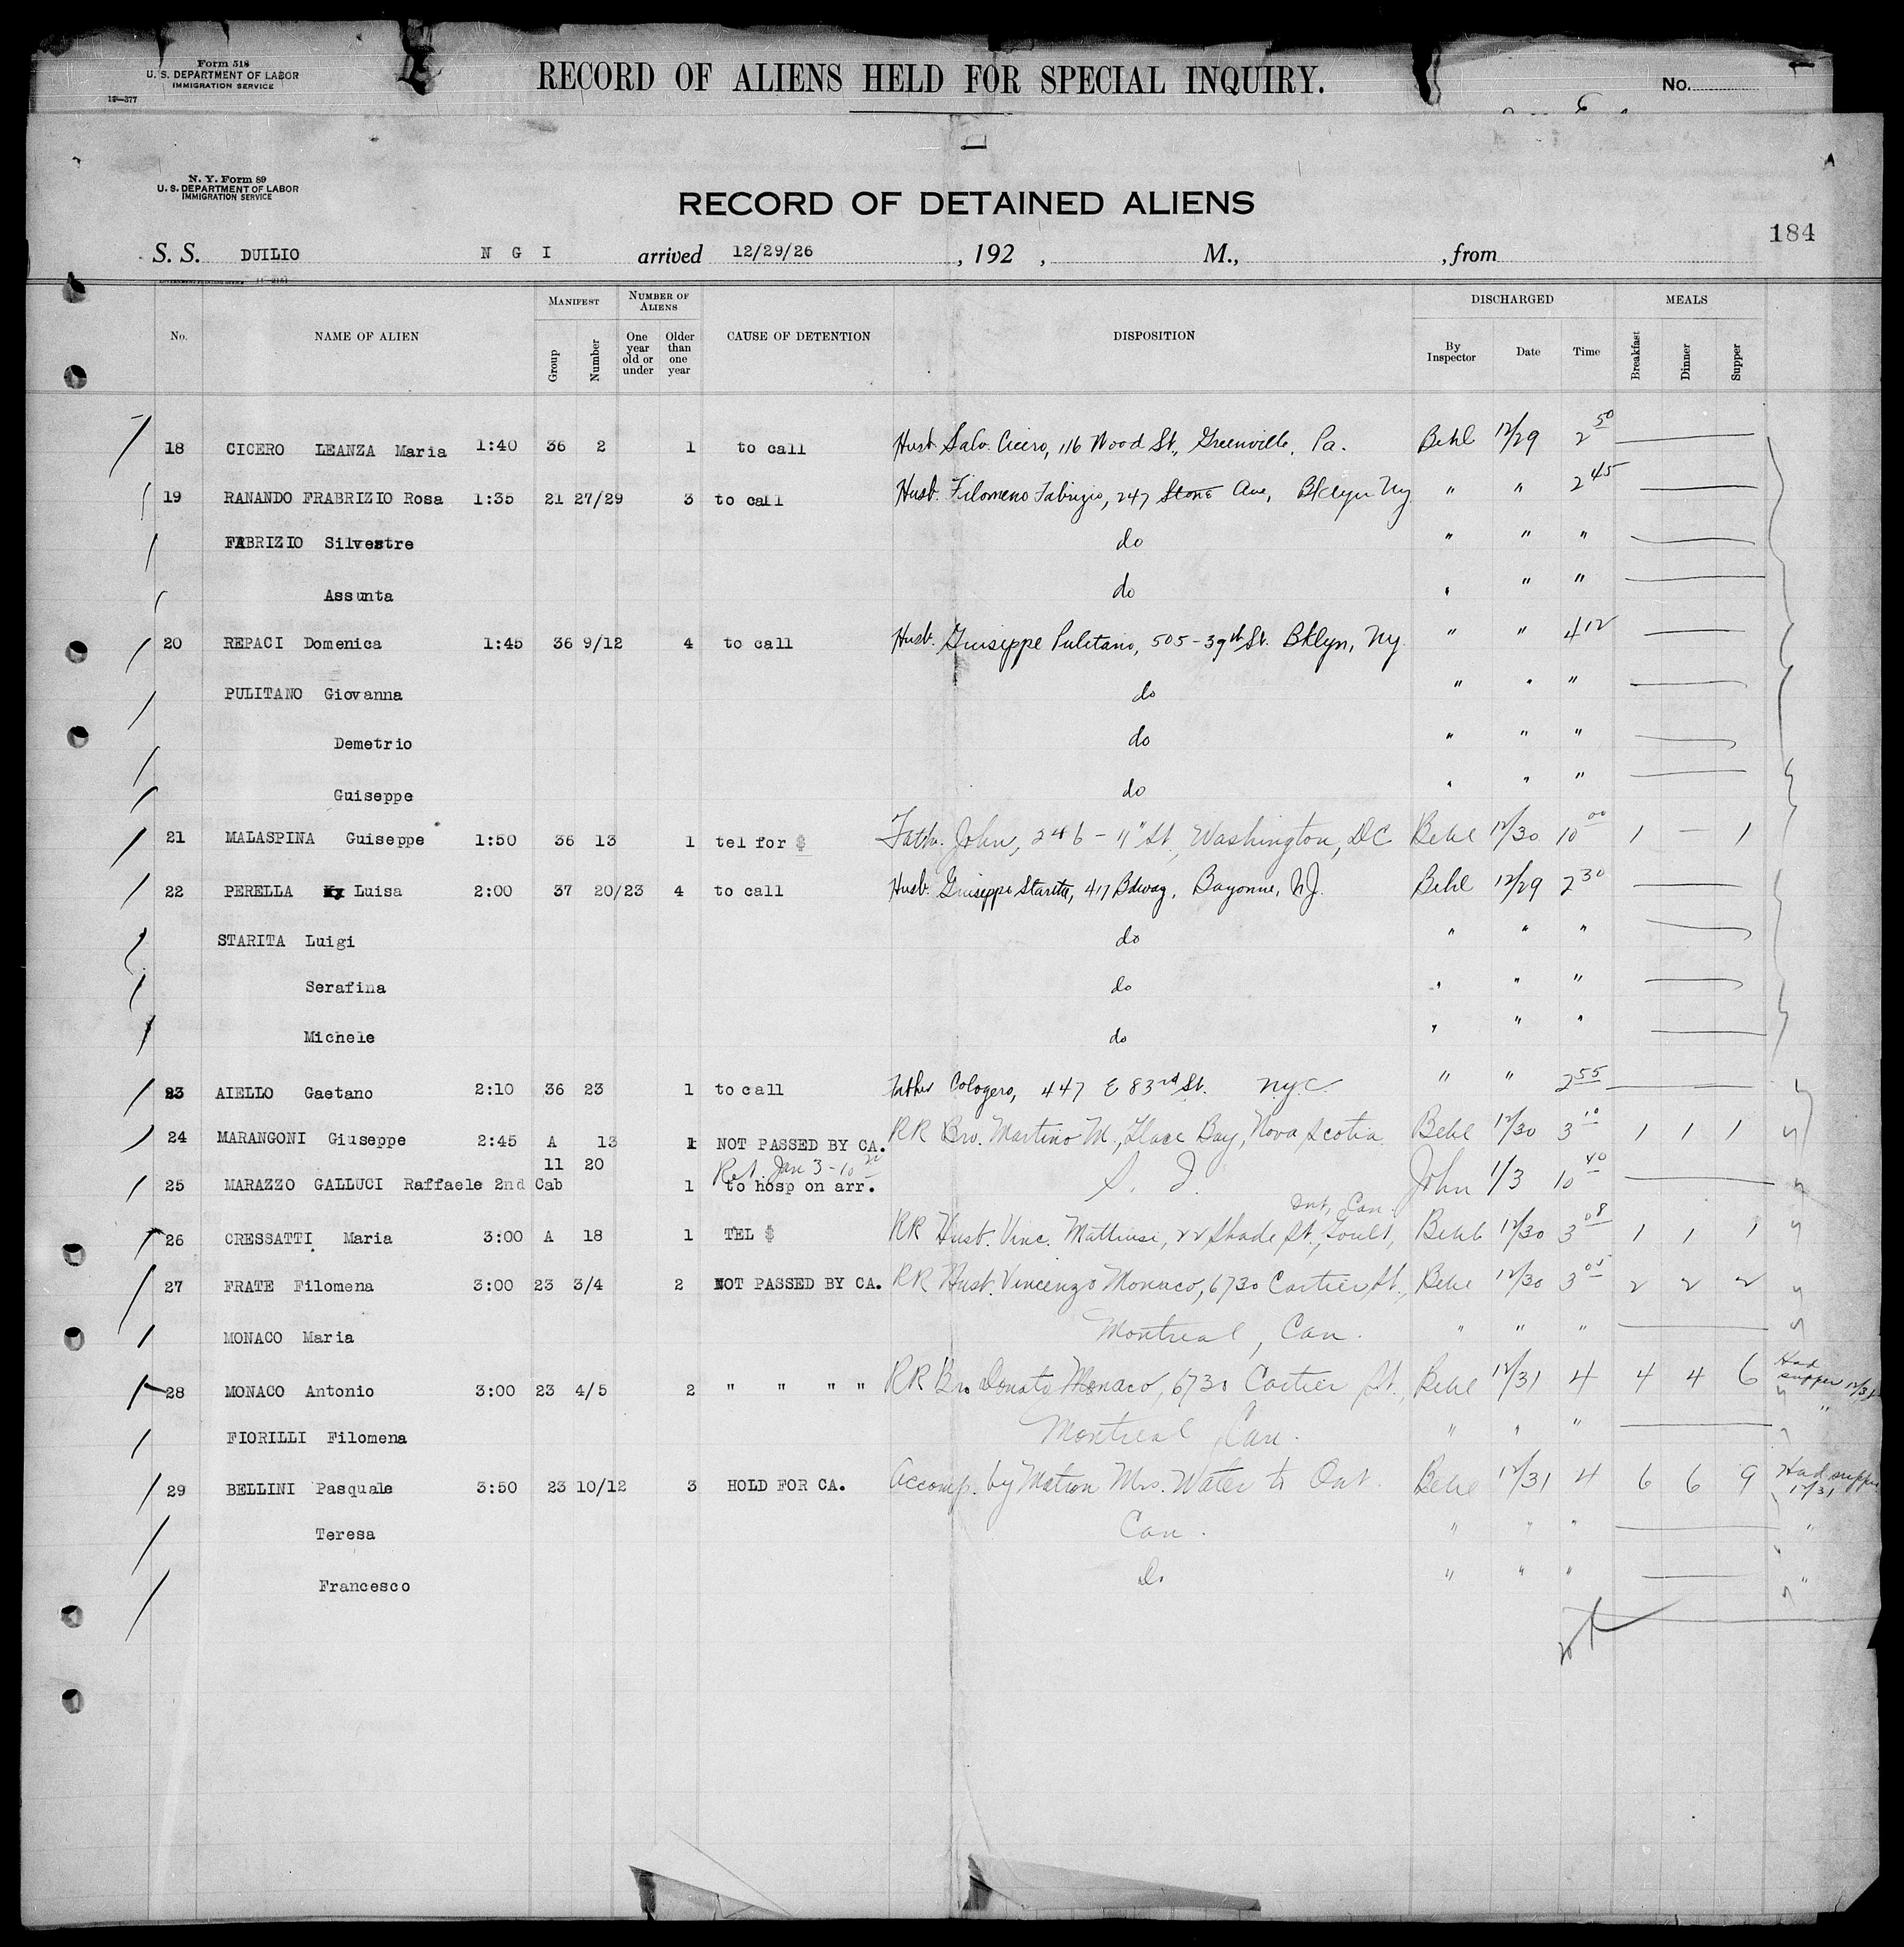 Form 518
U. S. DEPARTMENT OF LABOR
IMMIGRATION SERVICE
RECORD OF ALIENS HELD FOR SPECIAL INQUIRY.
No.
N. Y. Form 89
U. S. DEPARTMENT OF LABOR
IMMIGRATION SERVICE
RECORD OF DETAINED ALIENS
184
S. S. DUILIO N G I arrived 12/29/26 , 192 , M., , from
No. NAME OF ALIEN MANIFEST Group Number NUMBER OF ALIENS One year old or under Older than one year CAUSE OF DETENTION DISPOSITION DISCHARGED By Inspector Date Time MEALS Breakfast Dinner Supper
18 CICERO LEANZA Maria 1:40 36 2 1 to call Husb Salv. Cicero, 116 Wood St., Greenville, Pa. Behl 12/29 2 50
19 RANANDO FRABRIZIO Rosa 1:35 21 27/29 3 to call Husb. Filomeno Fabrizio, 247 Stone Ave, Bklyn Ny " " 2 45
FABRIZIO Silvestre do " " "
Assunta do " " "
20 REPACI Domenica 1:45 36 9/12 4 to call Husb. Giuseppe Pulitano, 505-39th St. Bklyn, Ny. " " 4 12
PULITANO Giovanna do " " "
Demetrio do " " "
Guiseppe do " " "
21 MALASPINA Guiseppe 1:50 36 13 1 tel for $ Fath. John, 246 - 11" St, Washington, DC Behl 12/30 10 00 1 — 1
22 PERELLA Luisa 2:00 37 20/23 4 to call Husb. Giuseppe Starita, 417 Bdway, Bayonne, NJ. Behl 12/29 2 30
STARITA Luigi do " " "
Serafina do " " "
Michele do " " "
23 AIELLO Gaetano 2:10 36 23 1 to call Father Cologero, 447 E 83rd St. N.Y.C. " " 2 55
24 MARANGONI Giuseppe 2:45 A 13 1 NOT PASSED BY CA. RR Bro. Martino M., Glace Bay, Nova Scotia. Behl 12/30 3 10 1 1 1
11 20 Ret. Jan 3-10 20
25 MARAZZO GALLUCI Raffaele 2nd Cab 1 to hosp on arr. S. I. John 1/3 10 40
Ont, Can.
26 CRESSATTI Maria 3:00 A 18 1 TEL $ RR Husb. Vinc. Mattiusi, 22 Shade St., Behl 12/30 3 08 1 1 1
27 FRATE Filomena 3:00 23 3/4 2 NOT PASSED BY CA. RR Husb. Vincenzo Monaco, 6730 Cartier St., Behl 12/30 3 05 2 2 2
MONACO Maria Montreal, Can. " " "
28 MONACO Antonio 3:00 23 4/5 2 " " " " RR Bro Donato Monaco, 6730 Cartier St., Behl 12/31 4 4 4 6 Had supper 12/31
FIORILLI Filomena Montreal Can. " " " "
29 BELLINI Pasquale 3:50 23 10/12 3 HOLD FOR CA. Accomp. by Matron Mrs. Water to Ont. Behl 12/31 4 6 6 9 Had supper 12/31
Teresa Can. " " " "
Francesco Do " " " "